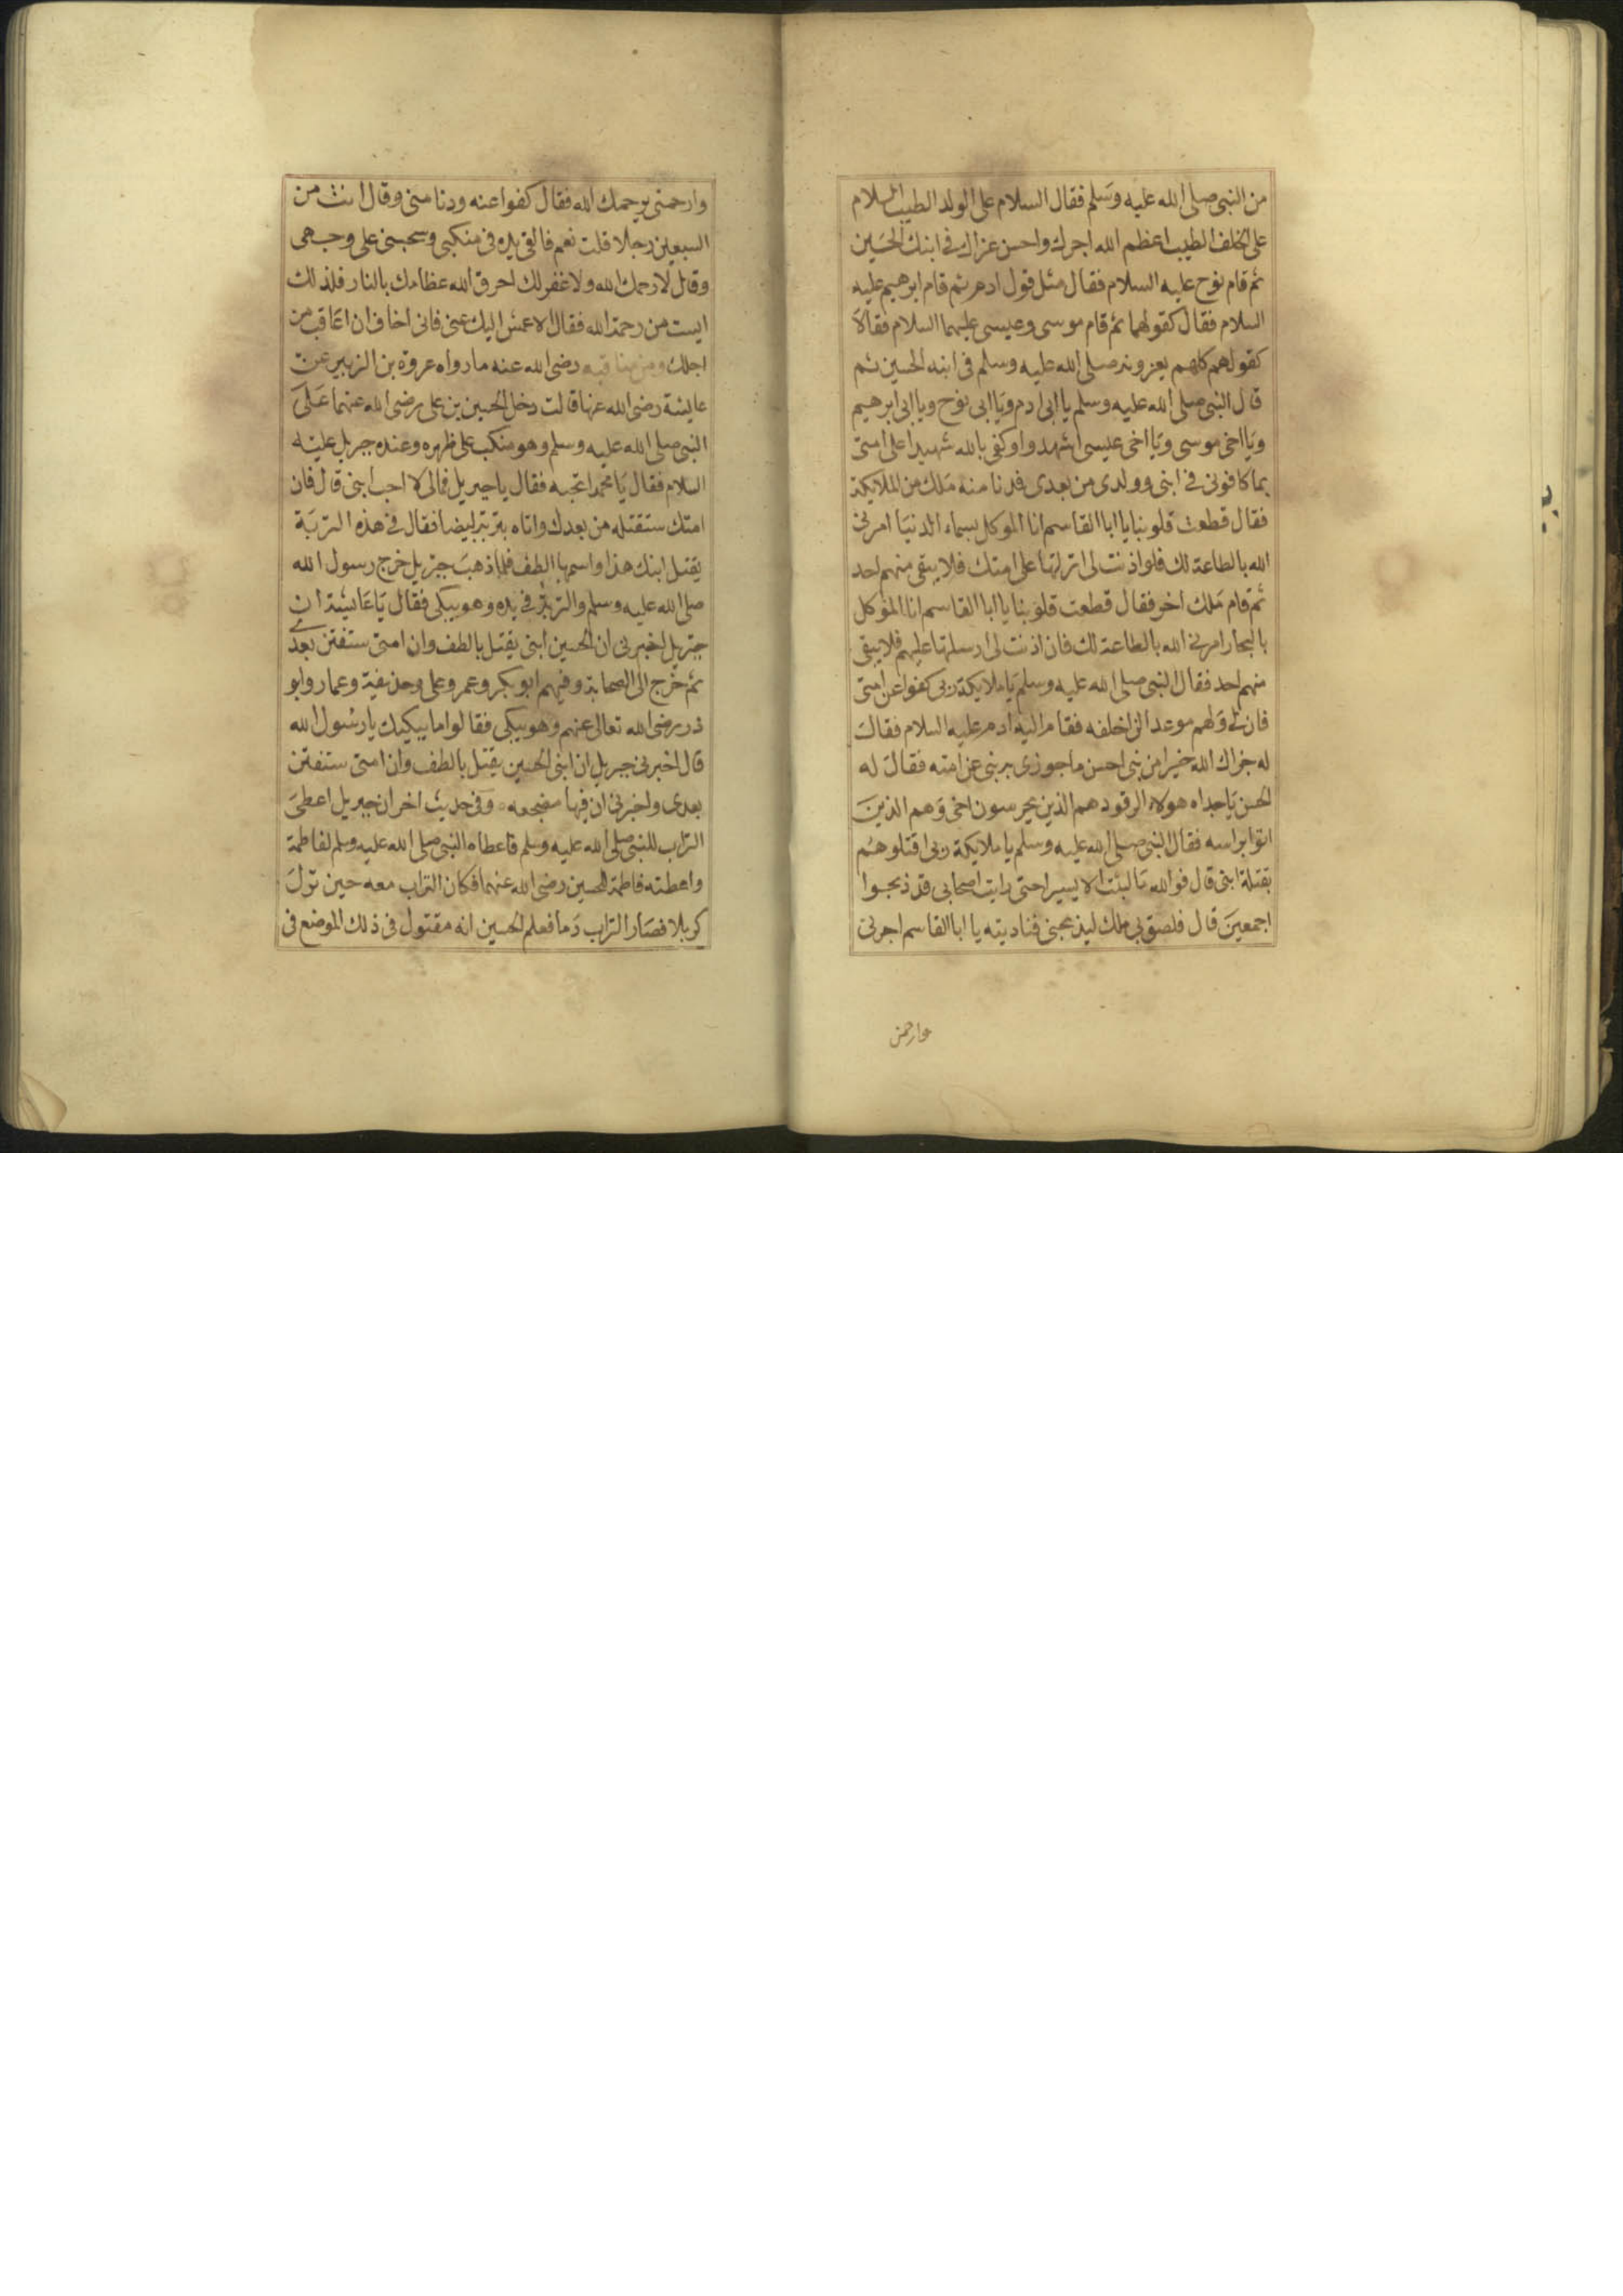 من النبى صلى الله عليه وسلم فقال السلام على الولد الطيب السلام
على الخلف الطيب اعظم الله اجرك واحسن عزاك فى ابنك الحسين
ثم قام نوح عليه السلام فقال مثل قول ادم ثم قام ابرهيم عليه
السلام فقال كقولهما ثم قام موسى وعيسى عليهما السلام فقالا
كقولهم كلهم يعزونه صلى الله عليه وسلم فى ابنه الحسين ثم
قال النبى صلى الله عليه وسلم يا ابى ادم ويا ابى نوح ويا ابى ابرهيم
ويا اخى موسى ويا اخى عيسى اشهدوا وكفى بالله شهيدا على امتى
بما كافونى فى ابنى وولدى من بعدى فدنا منه ملك من الملايكة
فقال قطعت قلوبنا يا ابا القاسم انا الموكل بسماء الدنيا امرنى
الله بالطاعة لك فلو اذنت لى انزلتها على امتك فلا يبقى منهم احد
ثم قام ملك اخر فقال قطعت قلوبنا يا ابا القاسم انا الموكل
بالبحار امرنى الله بالطاعة لك فان اذنت لى ارسلتها عليهم فلا يبقى
منهم احد فقال النبى صلى الله عليه وسلم يا ملايكة ربى كفوا عن امتى
فان لى ولهم موعدا لن اخلفه فقام اليه ادم عليه السلام فقال
له جزاك الله خيرا من نبى احسن ما جوزى به نبى عن امته فقال له
الحسن يا جداه هولاء الرقود هم الذين يحرسون اخى وهم الذين
اتوا براسه فقال النبى صلى الله عليه وسلم يا ملايكة ربى اقتلوهم
بقتلة ابنى قال فوالله ما لبثت الا يسيرا حتى رايت اصحابى قد ذبحوا
اجمعين قال فلصق بى ملك ليذبحنى فناديته يا ابا القاسم اجرنى
وارحمنى
وارحمنى يرحمك الله فقال كفوا عنه ودنا منى وقال انت من
السبعين رجلا قلت نعم فالقى يده فى منكبى وسحبنى على وجهى
وقال لا رحمك الله ولا غفر لك احرق الله عظامك بالنار فلذلك
ايست من رحمة الله فقال الاعمش اليك عنى فانى اخاف ان اعاقب من
اجلك ومن مناقبه رضى الله عنه ما رواه عروة بن الزبير عن
عايشة رضى الله عنها قالت دخل الحسين بن على رضى الله عنهما على
النبى صلى الله عليه وسلم وهو منكب على ظهره وعنده جبريل عليه
السلام فقال يا محمد اتحبه فقال يا جبريل فمالى لا احب ابنى قال فان
امتك ستقتله من بعدك واتاه بتربة بيضا فقال فى هذه التربة
يقتل ابنك هذا واسمها الطف فلما ذهب جبريل خرج رسول الله
صلى الله عليه وسلم والتربة فى يده وهو يبكى فقال يا عايشة ان
جبريل اخبرنى ان الحسين ابنى يقتل بالطف وان امتى ستفتن بعدى
ثم خرج الى الصحابة وفيهم ابو بكر وعمر وعلى وحذيفة وعمار وابو
ذر رضى الله تعالى عنهم وهو يبكى فقالوا ما يبكيك يا رسول الله
قال اخبرنى جبريل ان ابنى الحسين يقتل بالطف وان امتى ستفتن
بعدى واخبرنى ان فيها مضجعه وفى حديث اخر ان جبريل اعطى
التراب للنبى صلى الله عليه وسلم فاعطاه النبى صلى الله عليه وسلم لفاطمة
واعطته فاطمة الحسين رضى الله عنهما فكان التراب معه حين نزل
كربلا فصار التراب دما فعلم الحسين انه مقتول فى ذلك الموضع فى